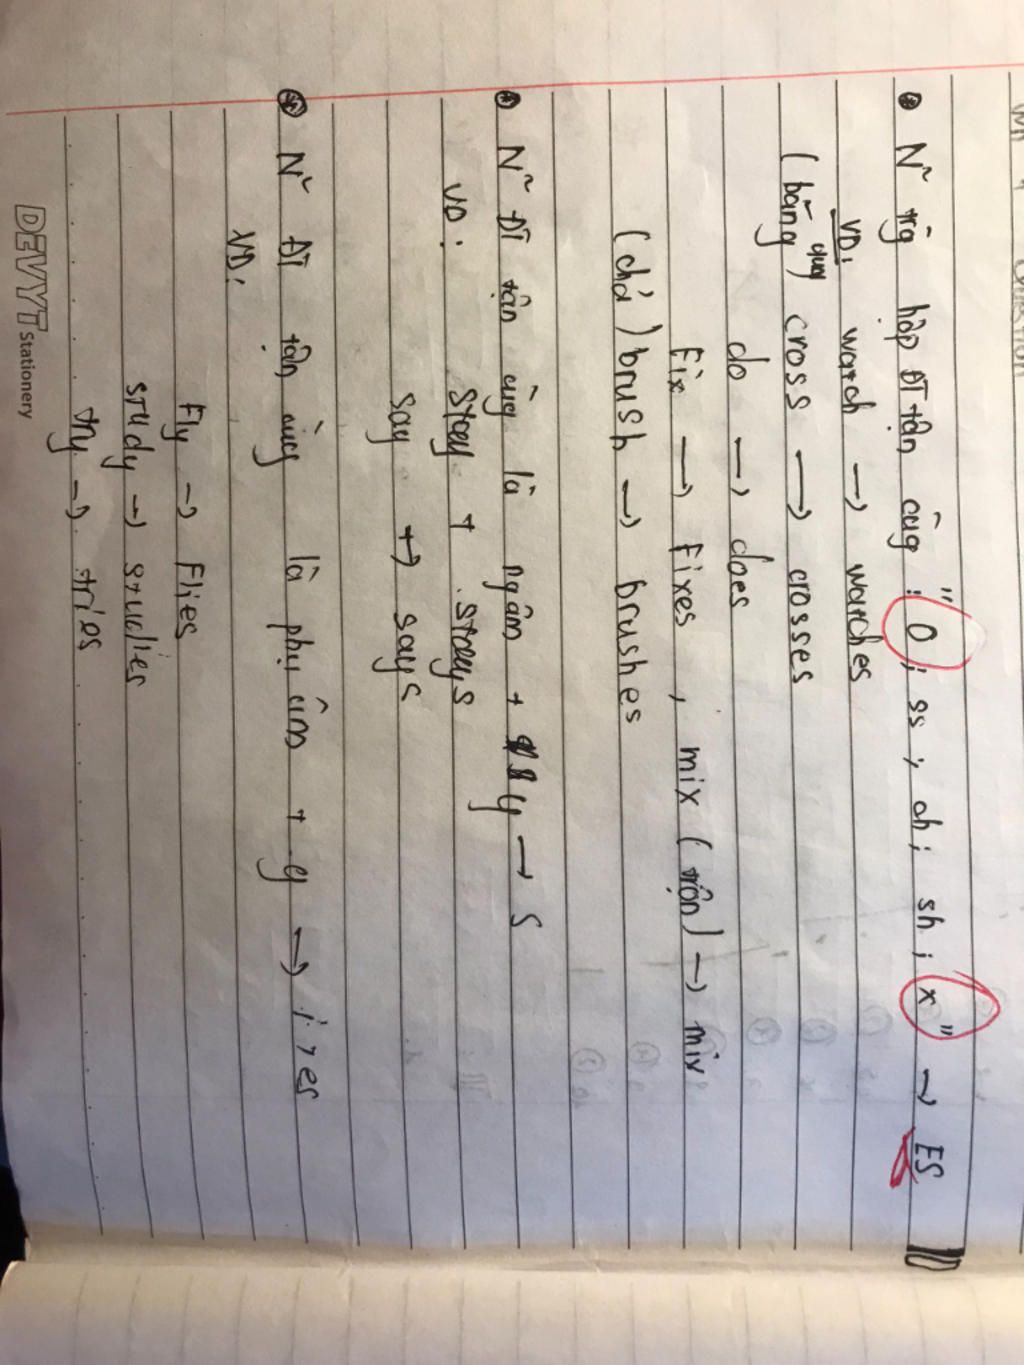 N~ tg hợp ĐT tận cùg : "O ; ss ; ch ; sh ; x" → ES
VD: watch → watches
(băng qua) cross → crosses
do → does
Fix → Fixes , mix (trộn) → mix
(chả) brush → brushes
N~ ĐT tận cùg là ngâm + y → S
VD: stay + stays
say → says
N~ ĐT tận cùg là phụ âm + y → i > es
VD:
Fly → Flies
study → studies
try → tries
DEVYT Stationery